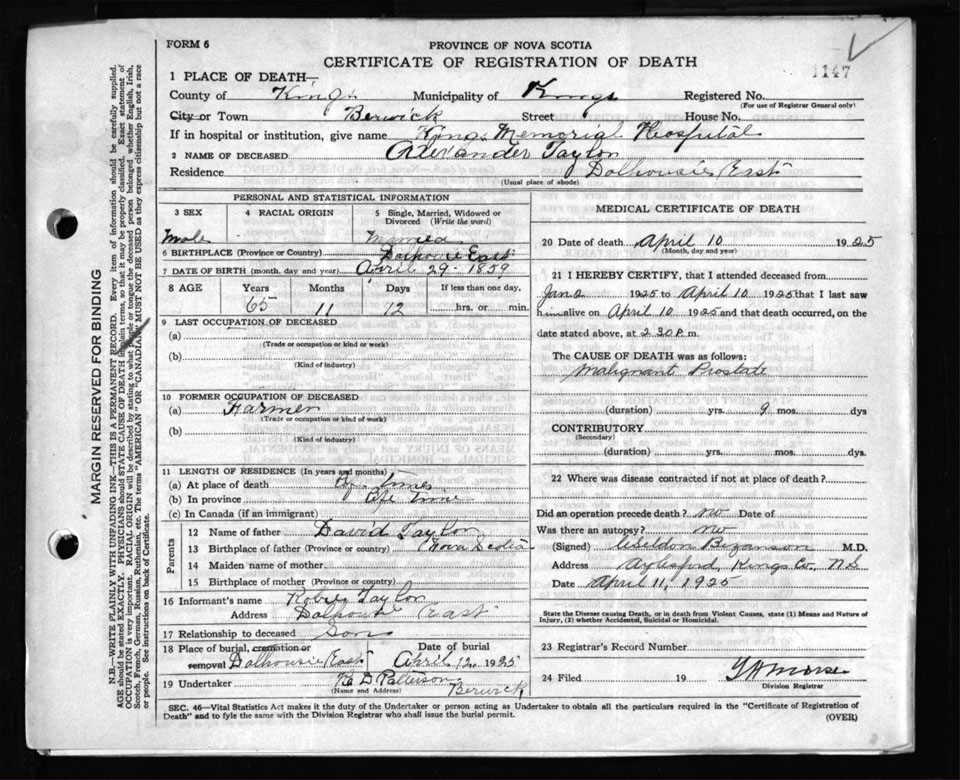 FORM 6
PROVINCE OF NOVA SCOTIA
CERTIFICATE OF REGISTRATION OF DEATH
1147
1 PLACE OF DEATH—
County of Kings Municipality of Kings Registered No.
(For use of Registrar General only)
City or Town Berwick Street House No.
If in hospital or institution, give name Kings Memorial Hospital
2 NAME OF DECEASED Alexander Taylor
Residence Dalhousie East
(Usual place of abode)
MARGIN RESERVED FOR BINDING
N.B.—WRITE PLAINLY WITH UNFADING INK—THIS IS A PERMANENT RECORD. Every item of information should be carefully supplied.
AGE should be stated EXACTLY. PHYSICIANS should STATE CAUSE OF DEATH in plain terms, so that it may be properly classified. Exact statement of
OCCUPATION is very important. RACIAL ORIGIN will be described by stating to what people or tongue the deceased person belonged whether English, Irish,
Scotch, French, German, Russian, Ruthenian, etc. The terms "AMERICAN" OR "CANADIAN" MUST NOT BE USED as they express citizenship but not a race
or people. See instructions on back of Certificate.
PERSONAL AND STATISTICAL INFORMATION
3 SEX 4 RACIAL ORIGIN 5 Single, Married, Widowed or
Divorced (Write the word)
Male Married
6 BIRTHPLACE (Province or Country) Dalhousie East
7 DATE OF BIRTH (month, day and year) April 29 - 1859
8 AGE Years Months Days If less than one day,
65 11 12 hrs. or min.
9 LAST OCCUPATION OF DECEASED
(a)
(Trade or occupation or kind of work)
(b)
(Kind of industry)
10 FORMER OCCUPATION OF DECEASED
(a) Farmer
(Trade or occupation or kind of work)
(b)
(Kind of industry)
11 LENGTH OF RESIDENCE (In years and months)
(a) At place of death
(b) In province Life Time
(c) In Canada (if an immigrant)
Parents
12 Name of father David Taylor
13 Birthplace of father (Province or country) Nova Scotia
14 Maiden name of mother
15 Birthplace of mother (Province or country)
16 Informant's name Robie Taylor
Address Dalhousie East
17 Relationship to deceased Son
18 Place of burial, cremation or Date of burial
removal Dalhousie East April 12 1925
19 Undertaker Berwick
(Name and Address)
MEDICAL CERTIFICATE OF DEATH
20 Date of death April 10 1925
(Month, day and year)
21 I HEREBY CERTIFY, that I attended deceased from
Jan 2 1925 to April 10 1925 that I last saw
him alive on April 10 1925 and that death occurred, on the
date stated above, at 2.30 P.m.
The CAUSE OF DEATH was as follows:
Malignant Prostate
(duration) yrs. 9 mos. dys
CONTRIBUTORY
(Secondary)
(duration) yrs. mos. dys.
22 Where was disease contracted if not at place of death?
Did an operation precede death? no Date of
Was there an autopsy? no
(Signed) Weldon Bezanson M.D.
Address Aylesford, Kings Co., N.S.
Date April 11, 1925
State the Disease causing Death, or in death from Violent Causes, state (1) Means and Nature of
Injury, (2) whether Accidental, Suicidal or Homicidal.
23 Registrar's Record Number
24 Filed 19 Morse
Division Registrar
SEC. 46—Vital Statistics Act makes it the duty of the Undertaker or person acting as Undertaker to obtain all the particulars required in the "Certificate of Registration of
Death" and to fyle the same with the Division Registrar who shall issue the burial permit.
(OVER)